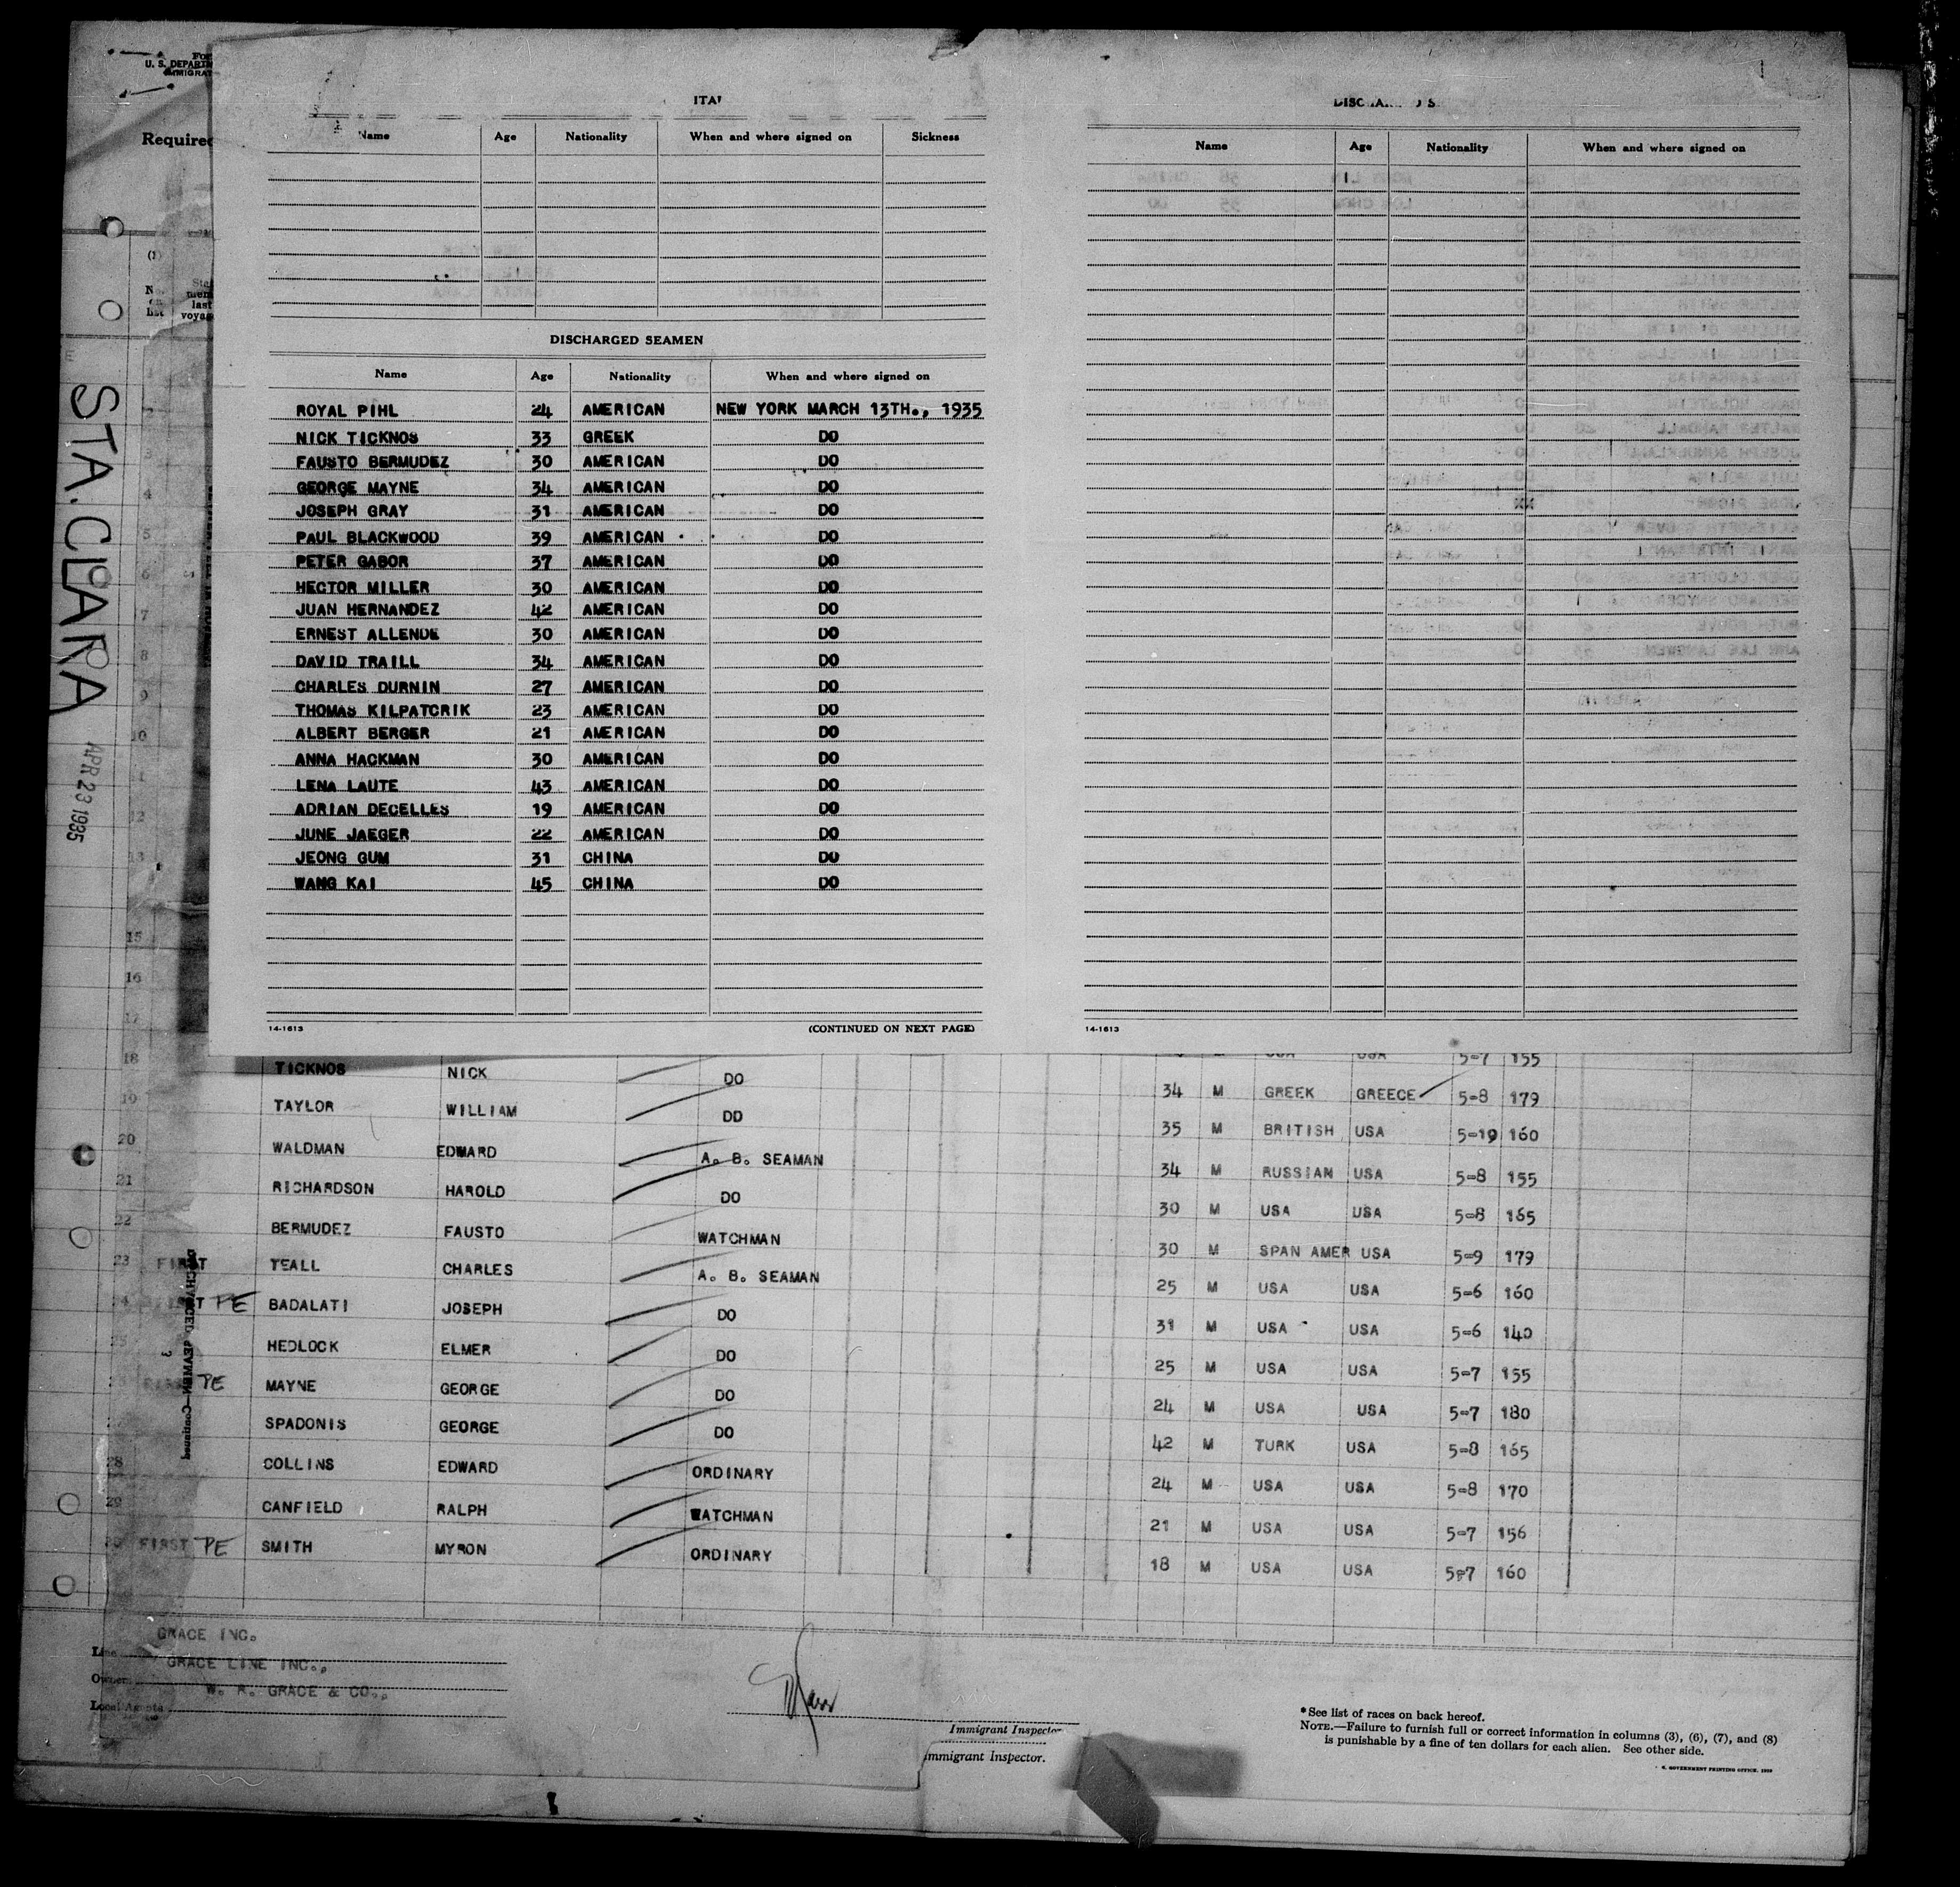 U. S. DEPARTM
IMMIGRAT
Required
STA. CLARA
APR 23 1935
Name Age Nationality When and where signed on Sickness
DISCHARGED SEAMEN
Name Age Nationality When and where signed on
ROYAL PIHL 24 AMERICAN NEW YORK MARCH 13TH., 1935
NICK TICKNOS 33 GREEK DO
FAUSTO BERMUDEZ 30 AMERICAN DO
GEORGE MAYNE 34 AMERICAN DO
JOSEPH GRAY 31 AMERICAN DO
PAUL BLACKWOOD 39 AMERICAN DO
PETER GABOR 37 AMERICAN DO
HECTOR MILLER 30 AMERICAN DO
JUAN HERNANDEZ 42 AMERICAN DO
ERNEST ALLENDE 30 AMERICAN DO
DAVID TRAILL 34 AMERICAN DO
CHARLES DURNIN 27 AMERICAN DO
THOMAS KILPATCRIK 23 AMERICAN DO
ALBERT BERGER 21 AMERICAN DO
ANNA HACKMAN 30 AMERICAN DO
LENA LAUTE 43 AMERICAN DO
ADRIAN DECELLES 19 AMERICAN DO
JUNE JAEGER 22 AMERICAN DO
JEONG GUM 31 CHINA DO
WANG KAI 45 CHINA DO
14-1613 (CONTINUED ON NEXT PAGE)
Name Age Nationality When and where signed on
14-1613
18 TICKNOS NICK DO 34 M GREEK GREECE 5-8 179
19 TAYLOR WILLIAM DO 35 M BRITISH USA 5-10 160
20 WALDMAN EDWARD A. B. SEAMAN 34 M RUSSIAN USA 5-8 155
21 RICHARDSON HAROLD DO 30 M USA USA 5-8 165
22 BERMUDEZ FAUSTO WATCHMAN 30 M SPAN AMER USA 5-9 179
23 FIRST TEALL CHARLES A. B. SEAMAN 25 M USA USA 5-6 160
24 FIRST PE BADALATI JOSEPH DO 31 M USA USA 5-6 140
25 HEDLOCK ELMER DO 25 M USA USA 5-7 155
FIRST PE MAYNE GEORGE DO 24 M USA USA 5-7 180
SPADONIS GEORGE DO 42 M TURK USA 5-8 165
28 COLLINS EDWARD ORDINARY 24 M USA USA 5-8 170
29 CANFIELD RALPH WATCHMAN 21 M USA USA 5-7 156
30 FIRST PE SMITH MYRON ORDINARY 18 M USA USA 5-7 160
DISCHARGED SEAMEN—Continued
Line GRACE INC.
Owner GRACE LINE INC.,
Local Agents W. R. GRACE & CO.,
Immigrant Inspector
Immigrant Inspector.
*See list of races on back hereof.
NOTE.—Failure to furnish full or correct information in columns (3), (6), (7), and (8)
is punishable by a fine of ten dollars for each alien. See other side.